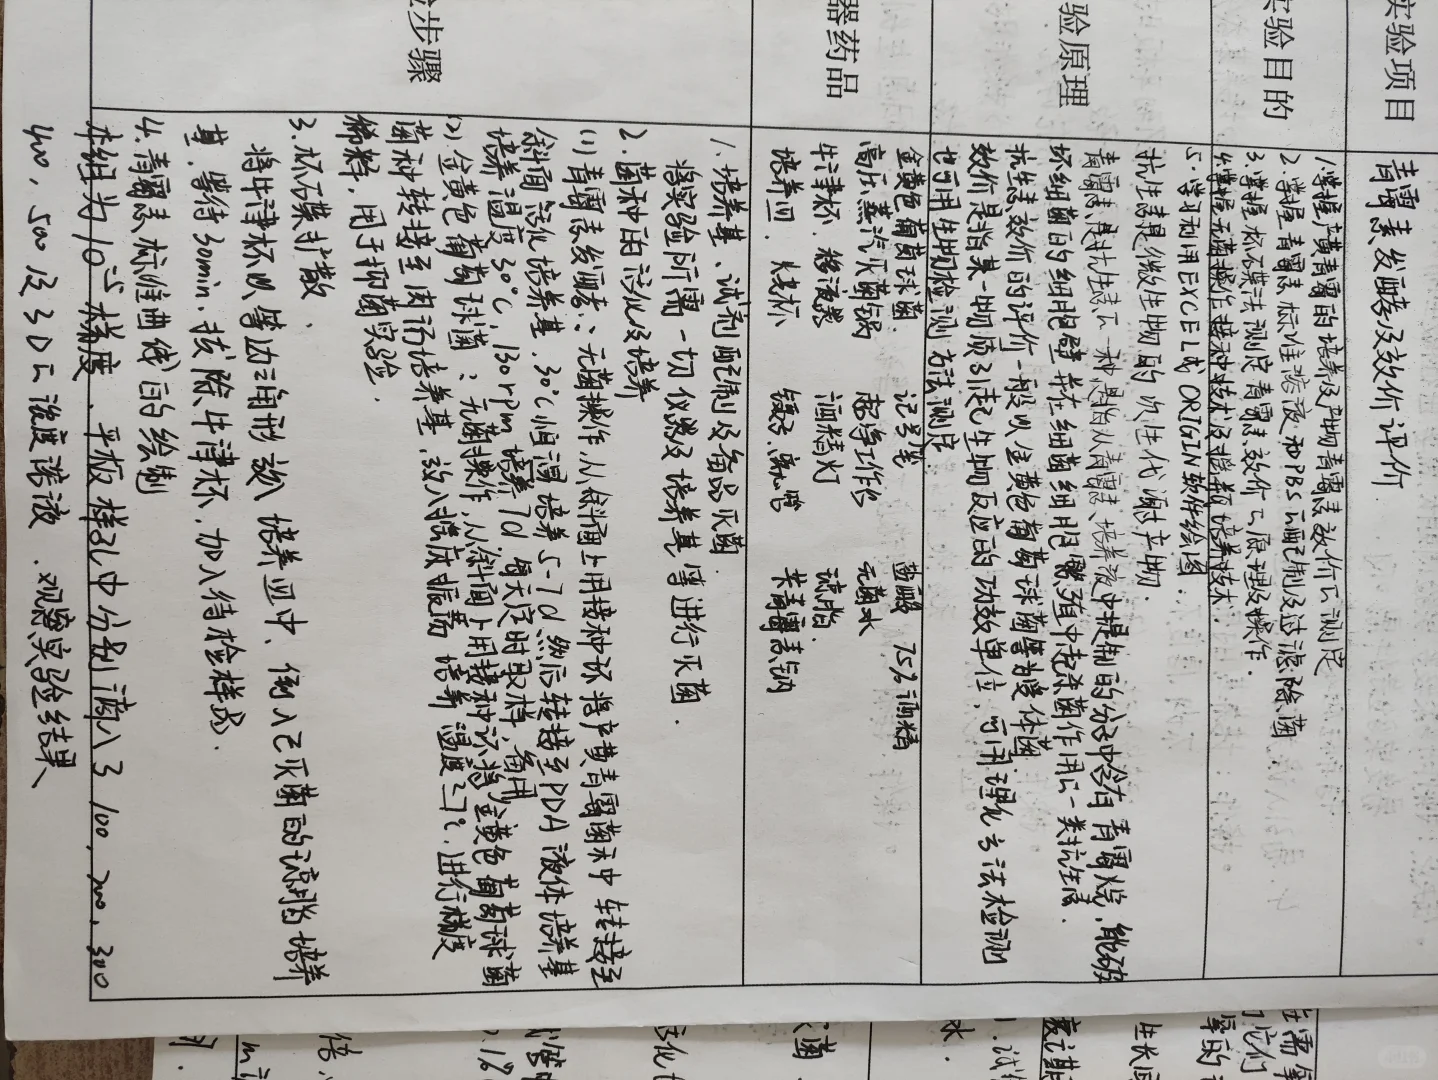 实验项目
青霉素发酵及效价评价
实验目的
1.掌握产黄青霉的培养及产物青霉素效价的测定
2.掌握青霉素标准溶液和PBS的配制及过滤除菌
3.掌握杯碟法测定青霉素效价的原理及操作.
4.掌握无菌操作接种技术及摇瓶培养技术.
5.学习利用EXCEL或ORIGIN软件绘图.
验原理
抗生素是微生物的次生代谢产物.
青霉素是抗生素的一种,是指从青霉素培养液中提制的分子中含有青霉烷,能破
坏细菌的细胞壁并在细菌细胞繁殖中起杀菌作用的一类抗生素.
抗生素效价的评价一般以金黄色葡萄球菌等为受体菌
效价是指某一物质引起生物反应的功效单位,可用理化方法检测
也可用生物检测方法测定
器药品
金黄色葡萄球菌 记号笔 盐酸 75%酒精
高压蒸汽灭菌锅 超净工作台 无菌水
牛津杯.移液器 酒精灯 琼脂.
培养皿.烧杯 镊子.离心管 苄青霉素钠
步骤
1.培养基、试剂配制及备品灭菌.
将实验所需一切仪器及培养基等进行灭菌.
2.菌种的活化及培养
(1)青霉素发酵:无菌操作从斜面上用接种环将产黄青霉菌种中转接至
斜面活化培养基.30℃恒温培养5-7d 然后转接至PDA液体培养基
培养温度30℃,130rpm培养7d 每天定时取样,备用
(2)金黄色葡萄球菌:无菌操作,从斜面上用接种环将金黄色葡萄球菌
菌种转接至肉汤培养基,放入摇床振荡培养 温度37℃.进行梯度
稀释,用于抑菌实验.
3.杯碟扩散.
将牛津杯以等边三角形放入培养皿中、倒入已灭菌的琼脂培养
基,等待30min.拔除牛津杯,加入待检样品.
4.青霉素标准曲线的绘制
本组为10⁻⁵梯度、平板样孔中分别滴入3 100,200,300
400,500及30的浓度溶液.观察实验结果